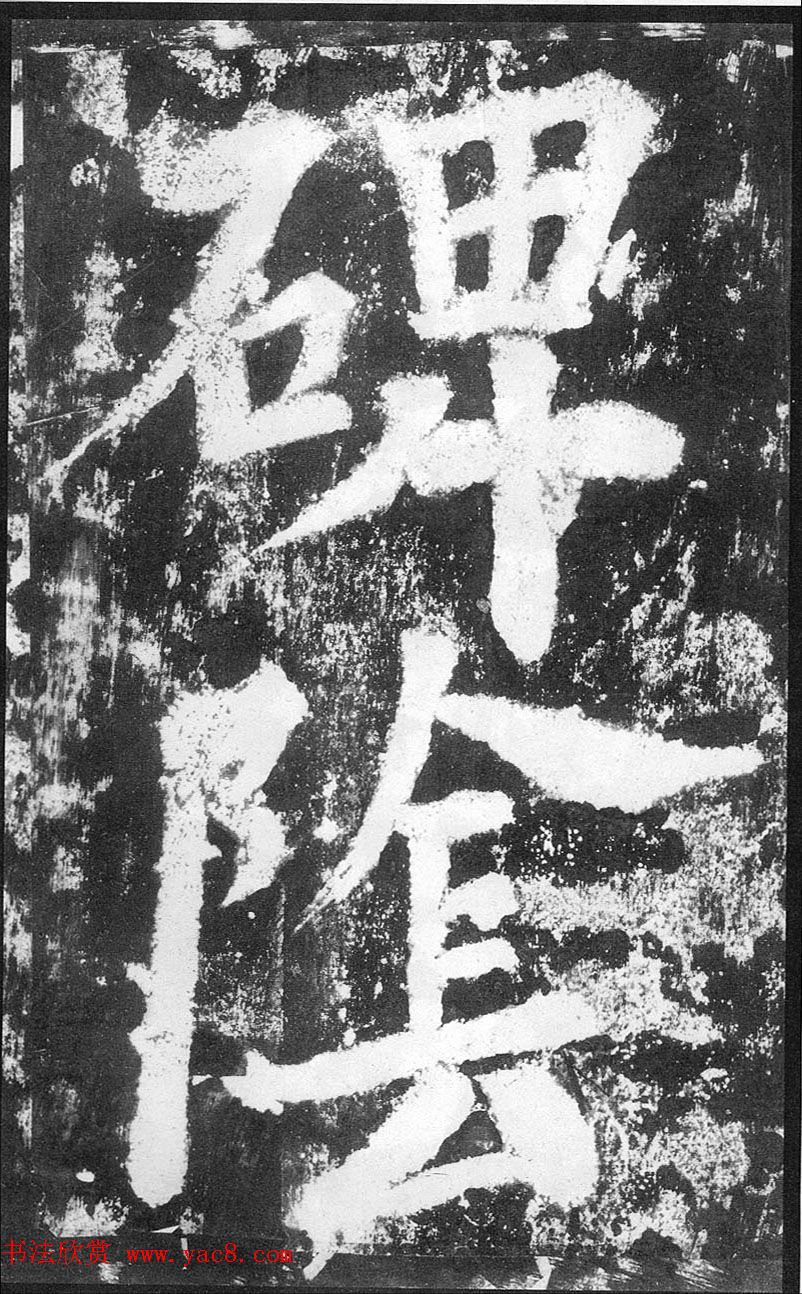 碑
陰
书法欣赏 www.yac8.com